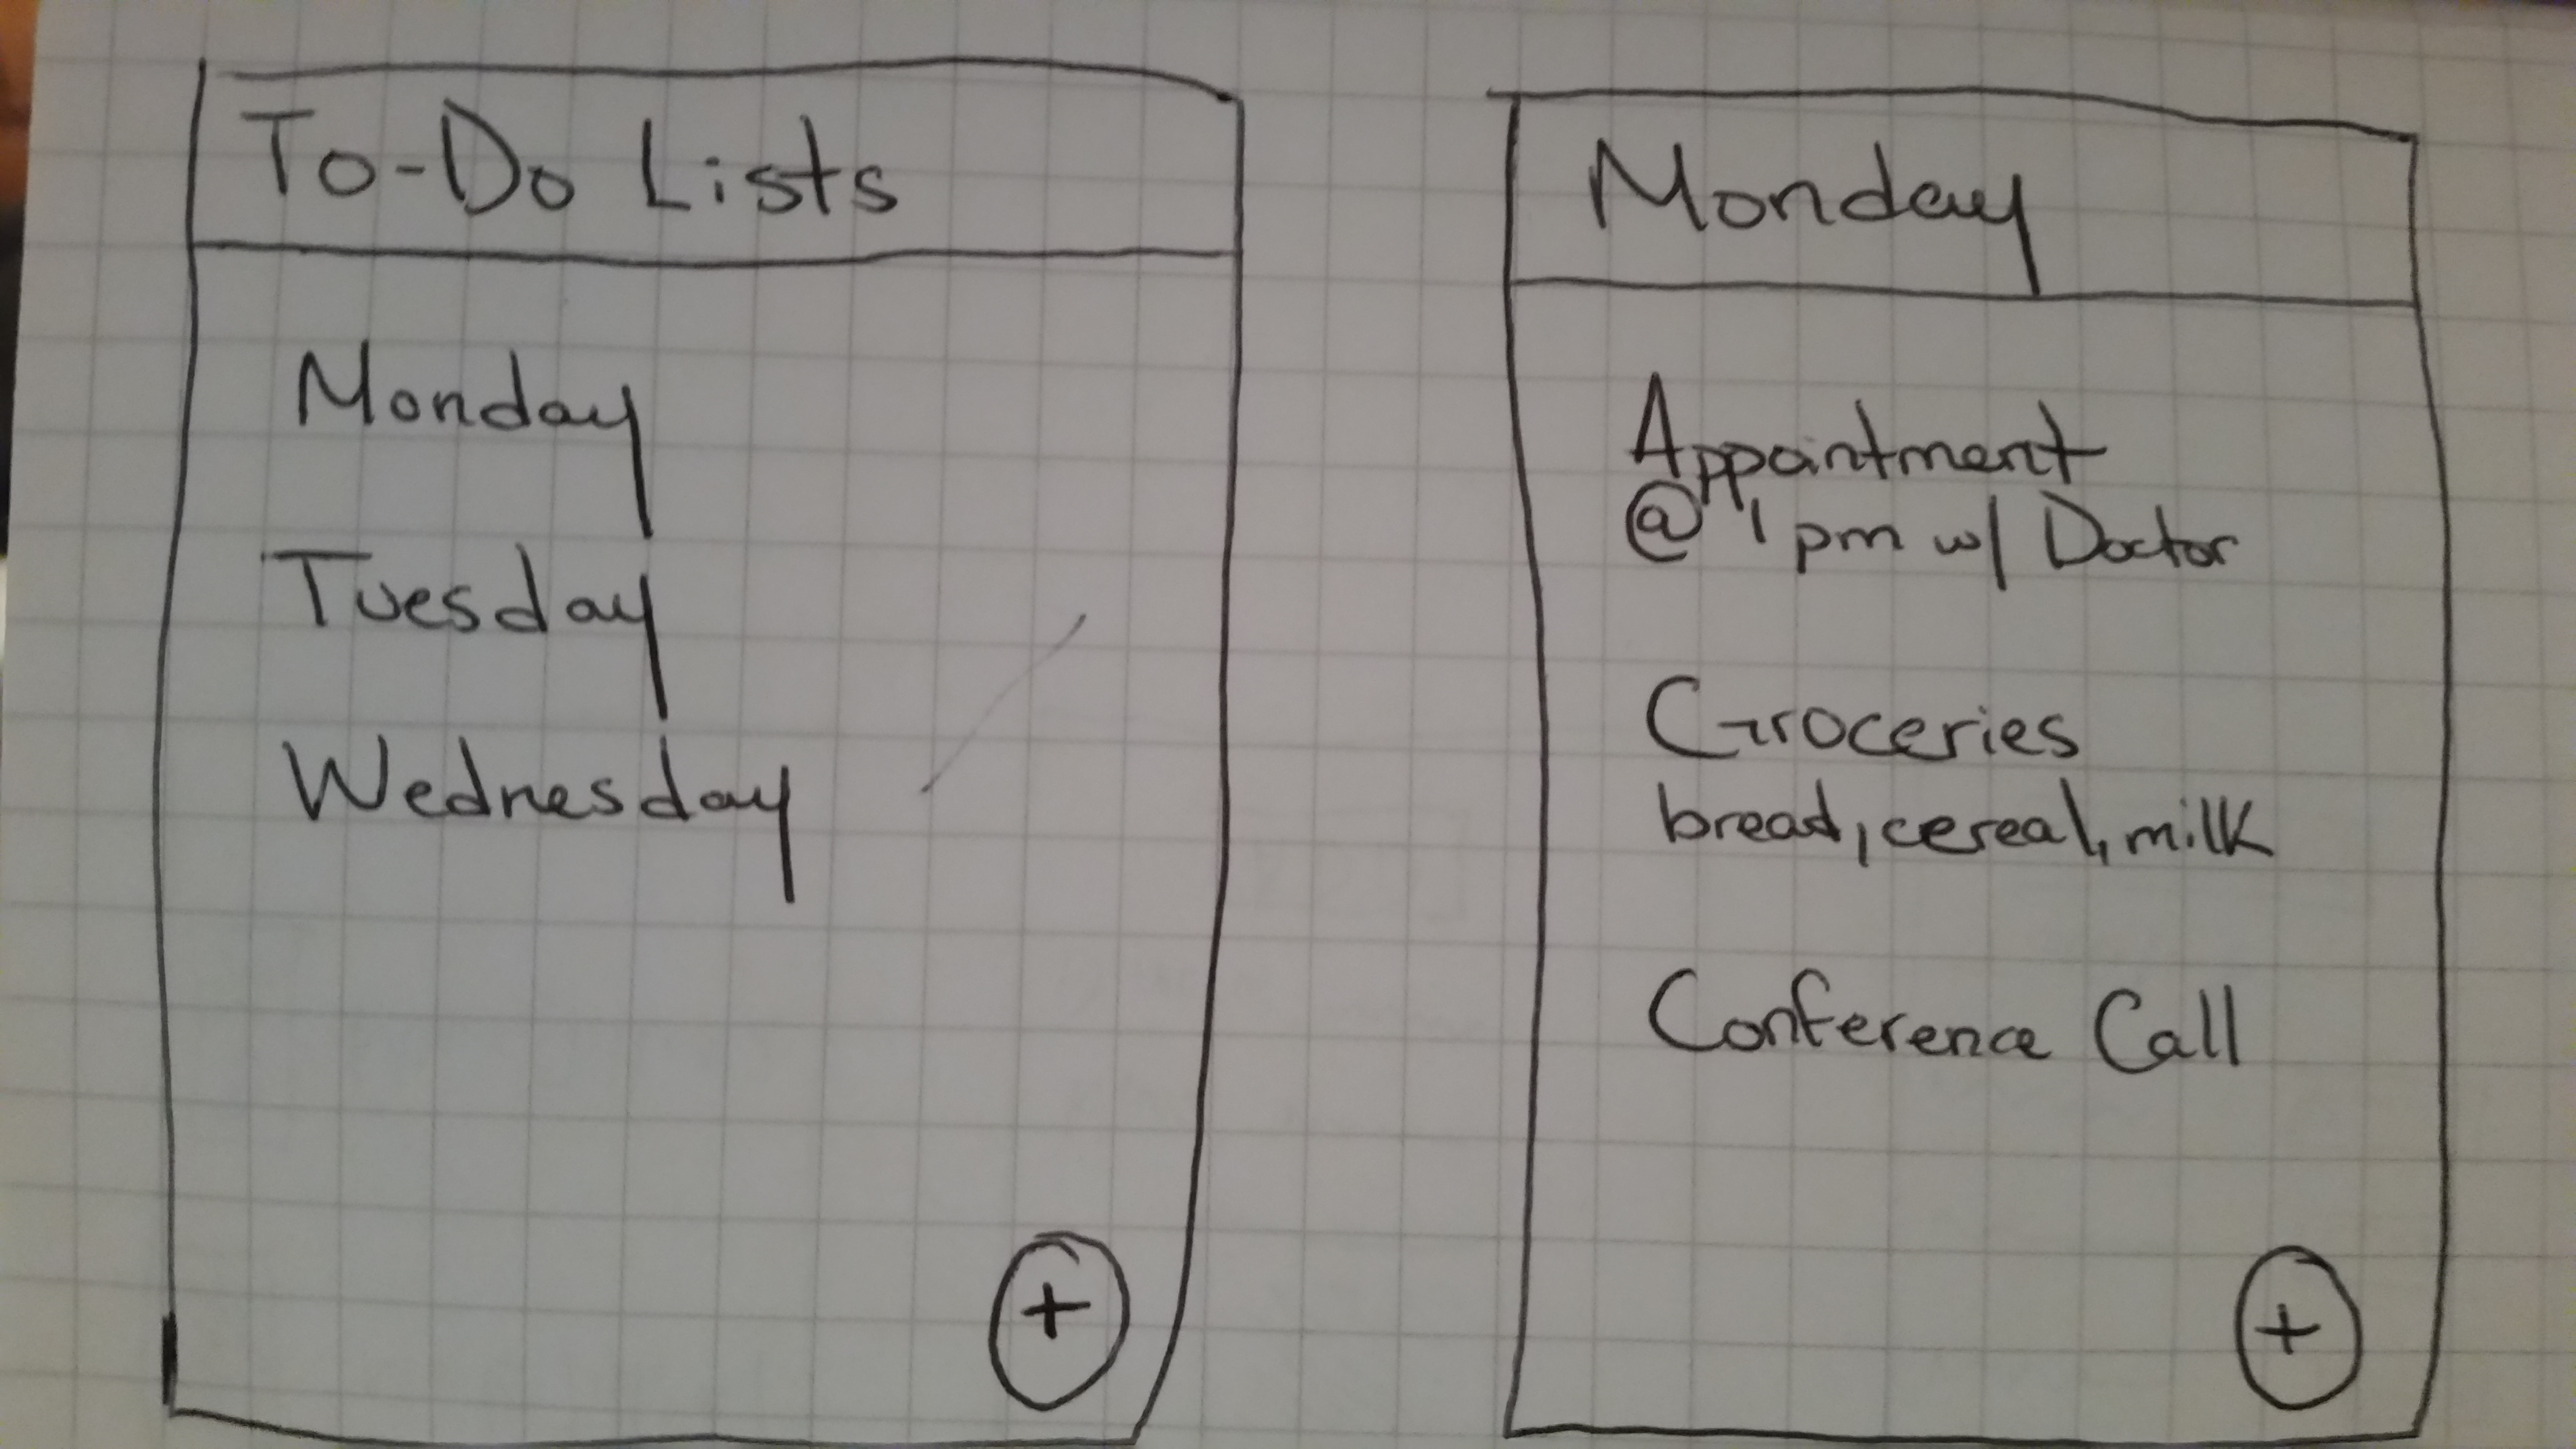 To-Do Lists
Monday
Tuesday
Wednesday
+
Monday
Appointment
@ 1 pm w/ Doctor
Groceries
bread, cereal, milk
Conference Call
+